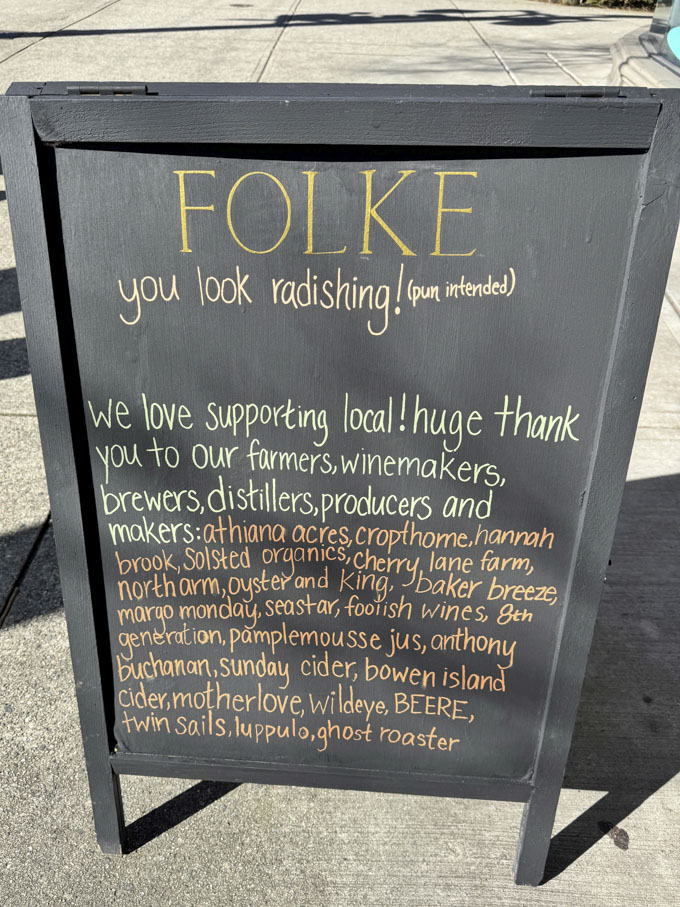 FOLKE
you look radishing! (pun intended)
we love supporting local! huge thank
you to our farmers, winemakers,
brewers, distillers, producers and
makers: athiana acres, cropthorne, hannah
brook, Solsted organics, cherry lane farm,
north arm, oyster and King, baker breeze,
margo monday, seastar, foolish wines, 8th
generation, pamplemousse jus, anthony
buchanan, sunday cider, bowen island
cider, motherlove, wildeye, BEERE,
twin sails, luppulo, ghost roaster